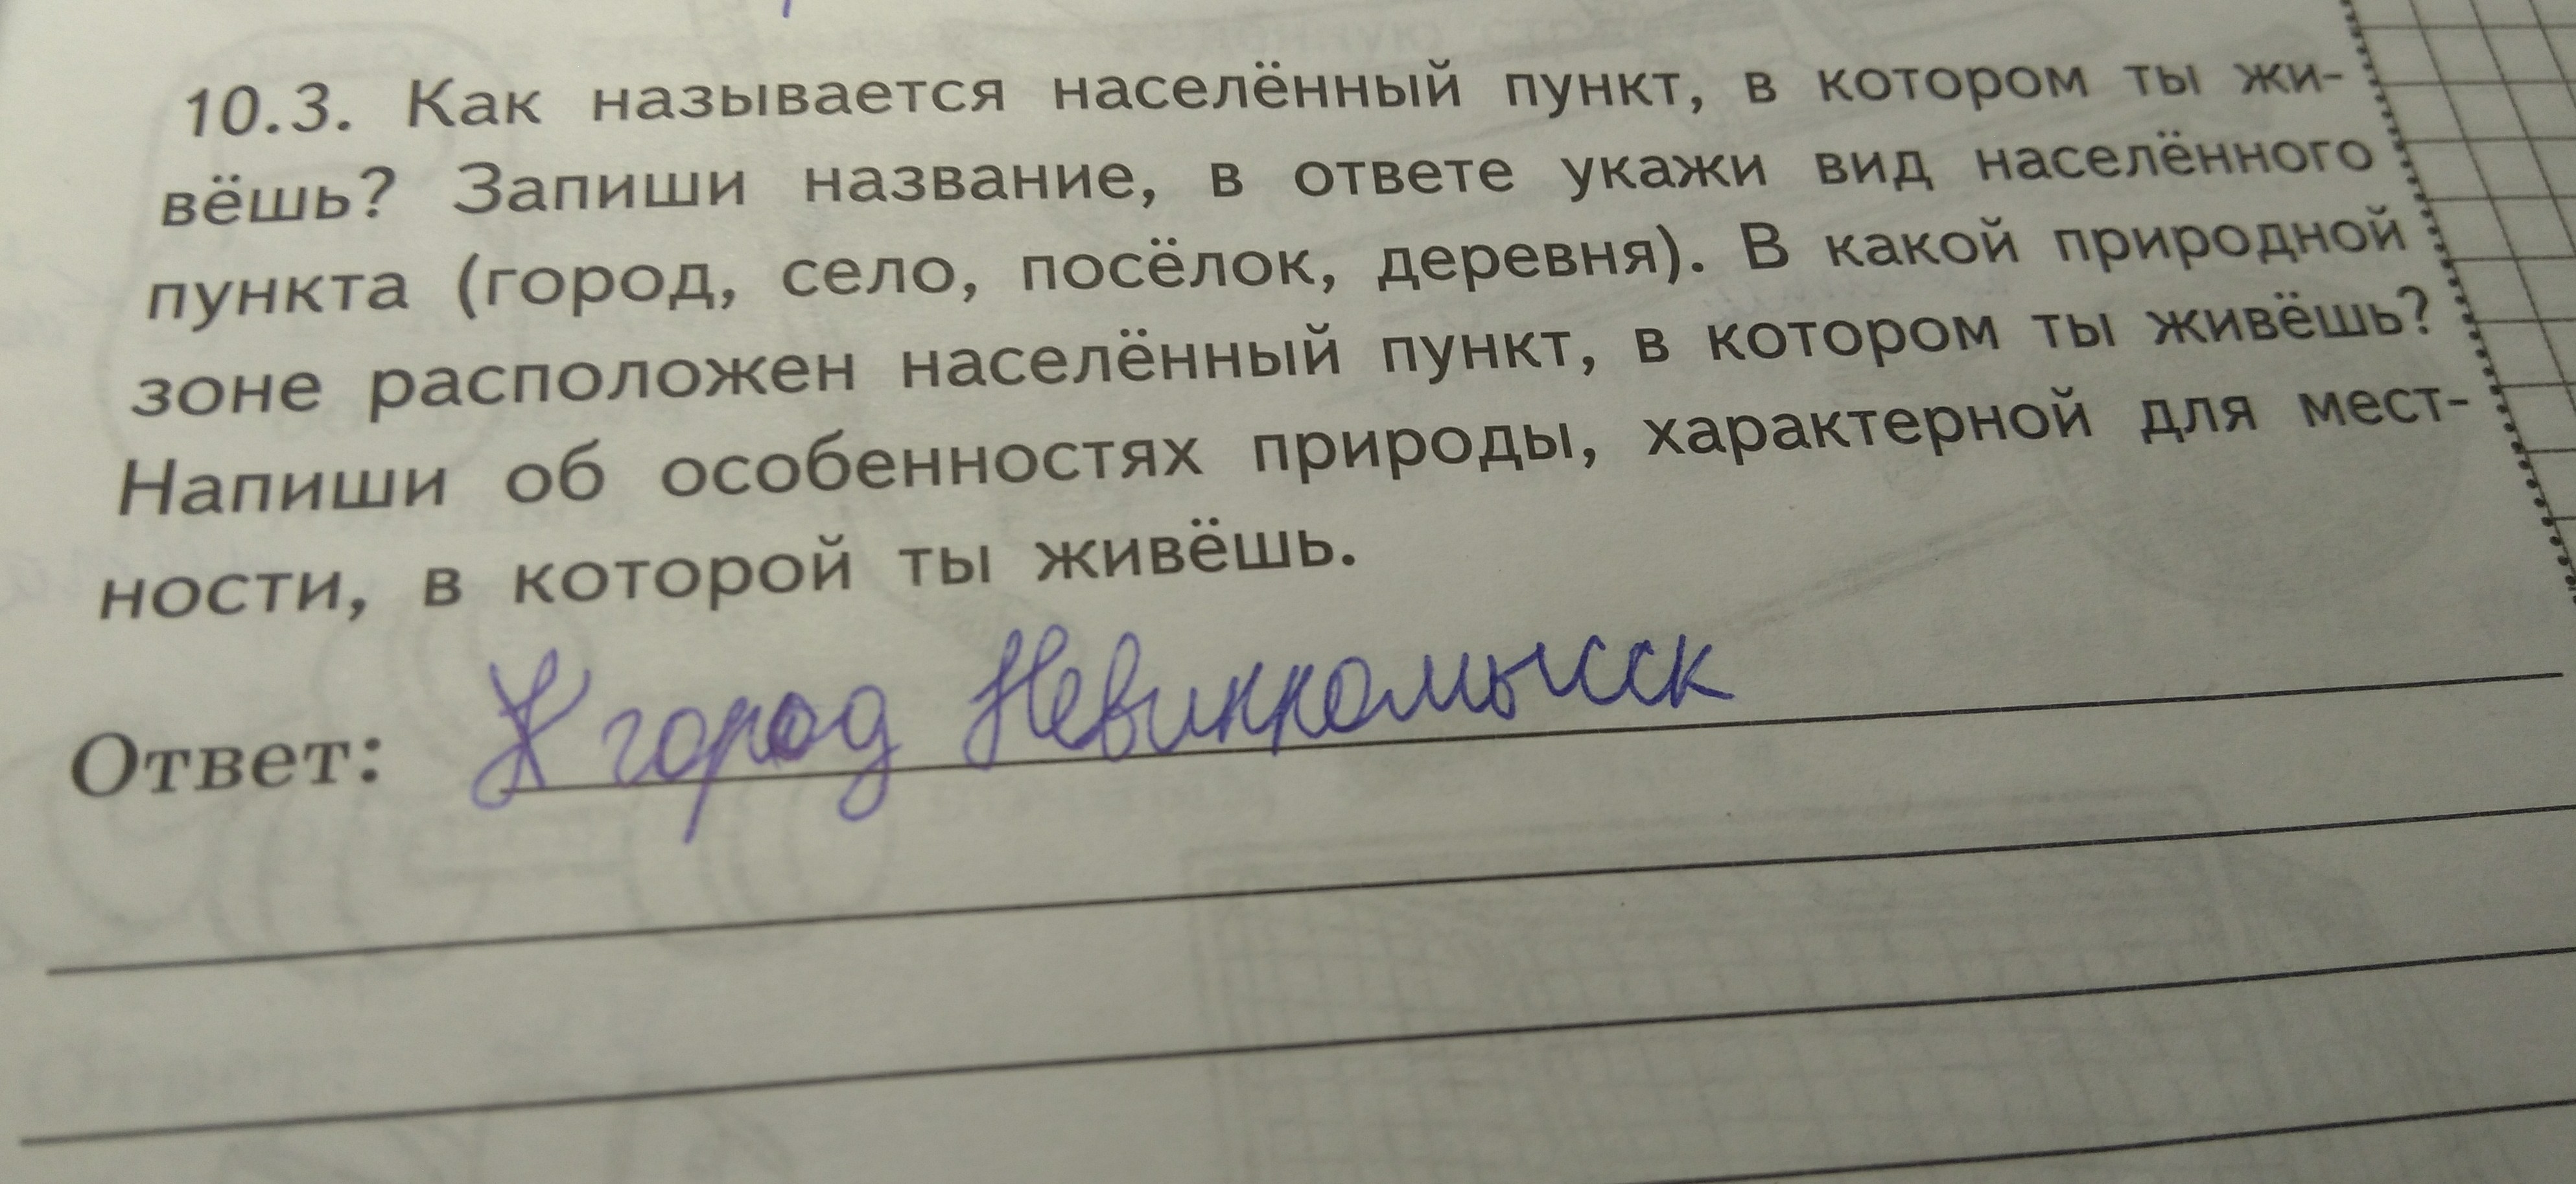 10.3. Как называется населённый пункт, в котором ты жи-
вёшь? Запиши название, в ответе укажи вид населённого
пункта (город, село, посёлок, деревня). В какой природной
зоне расположен населённый пункт, в котором ты живёшь?
Напиши об особенностях природы, характерной для мест-
ности, в которой ты живёшь.
Ответ: город Невинномысск